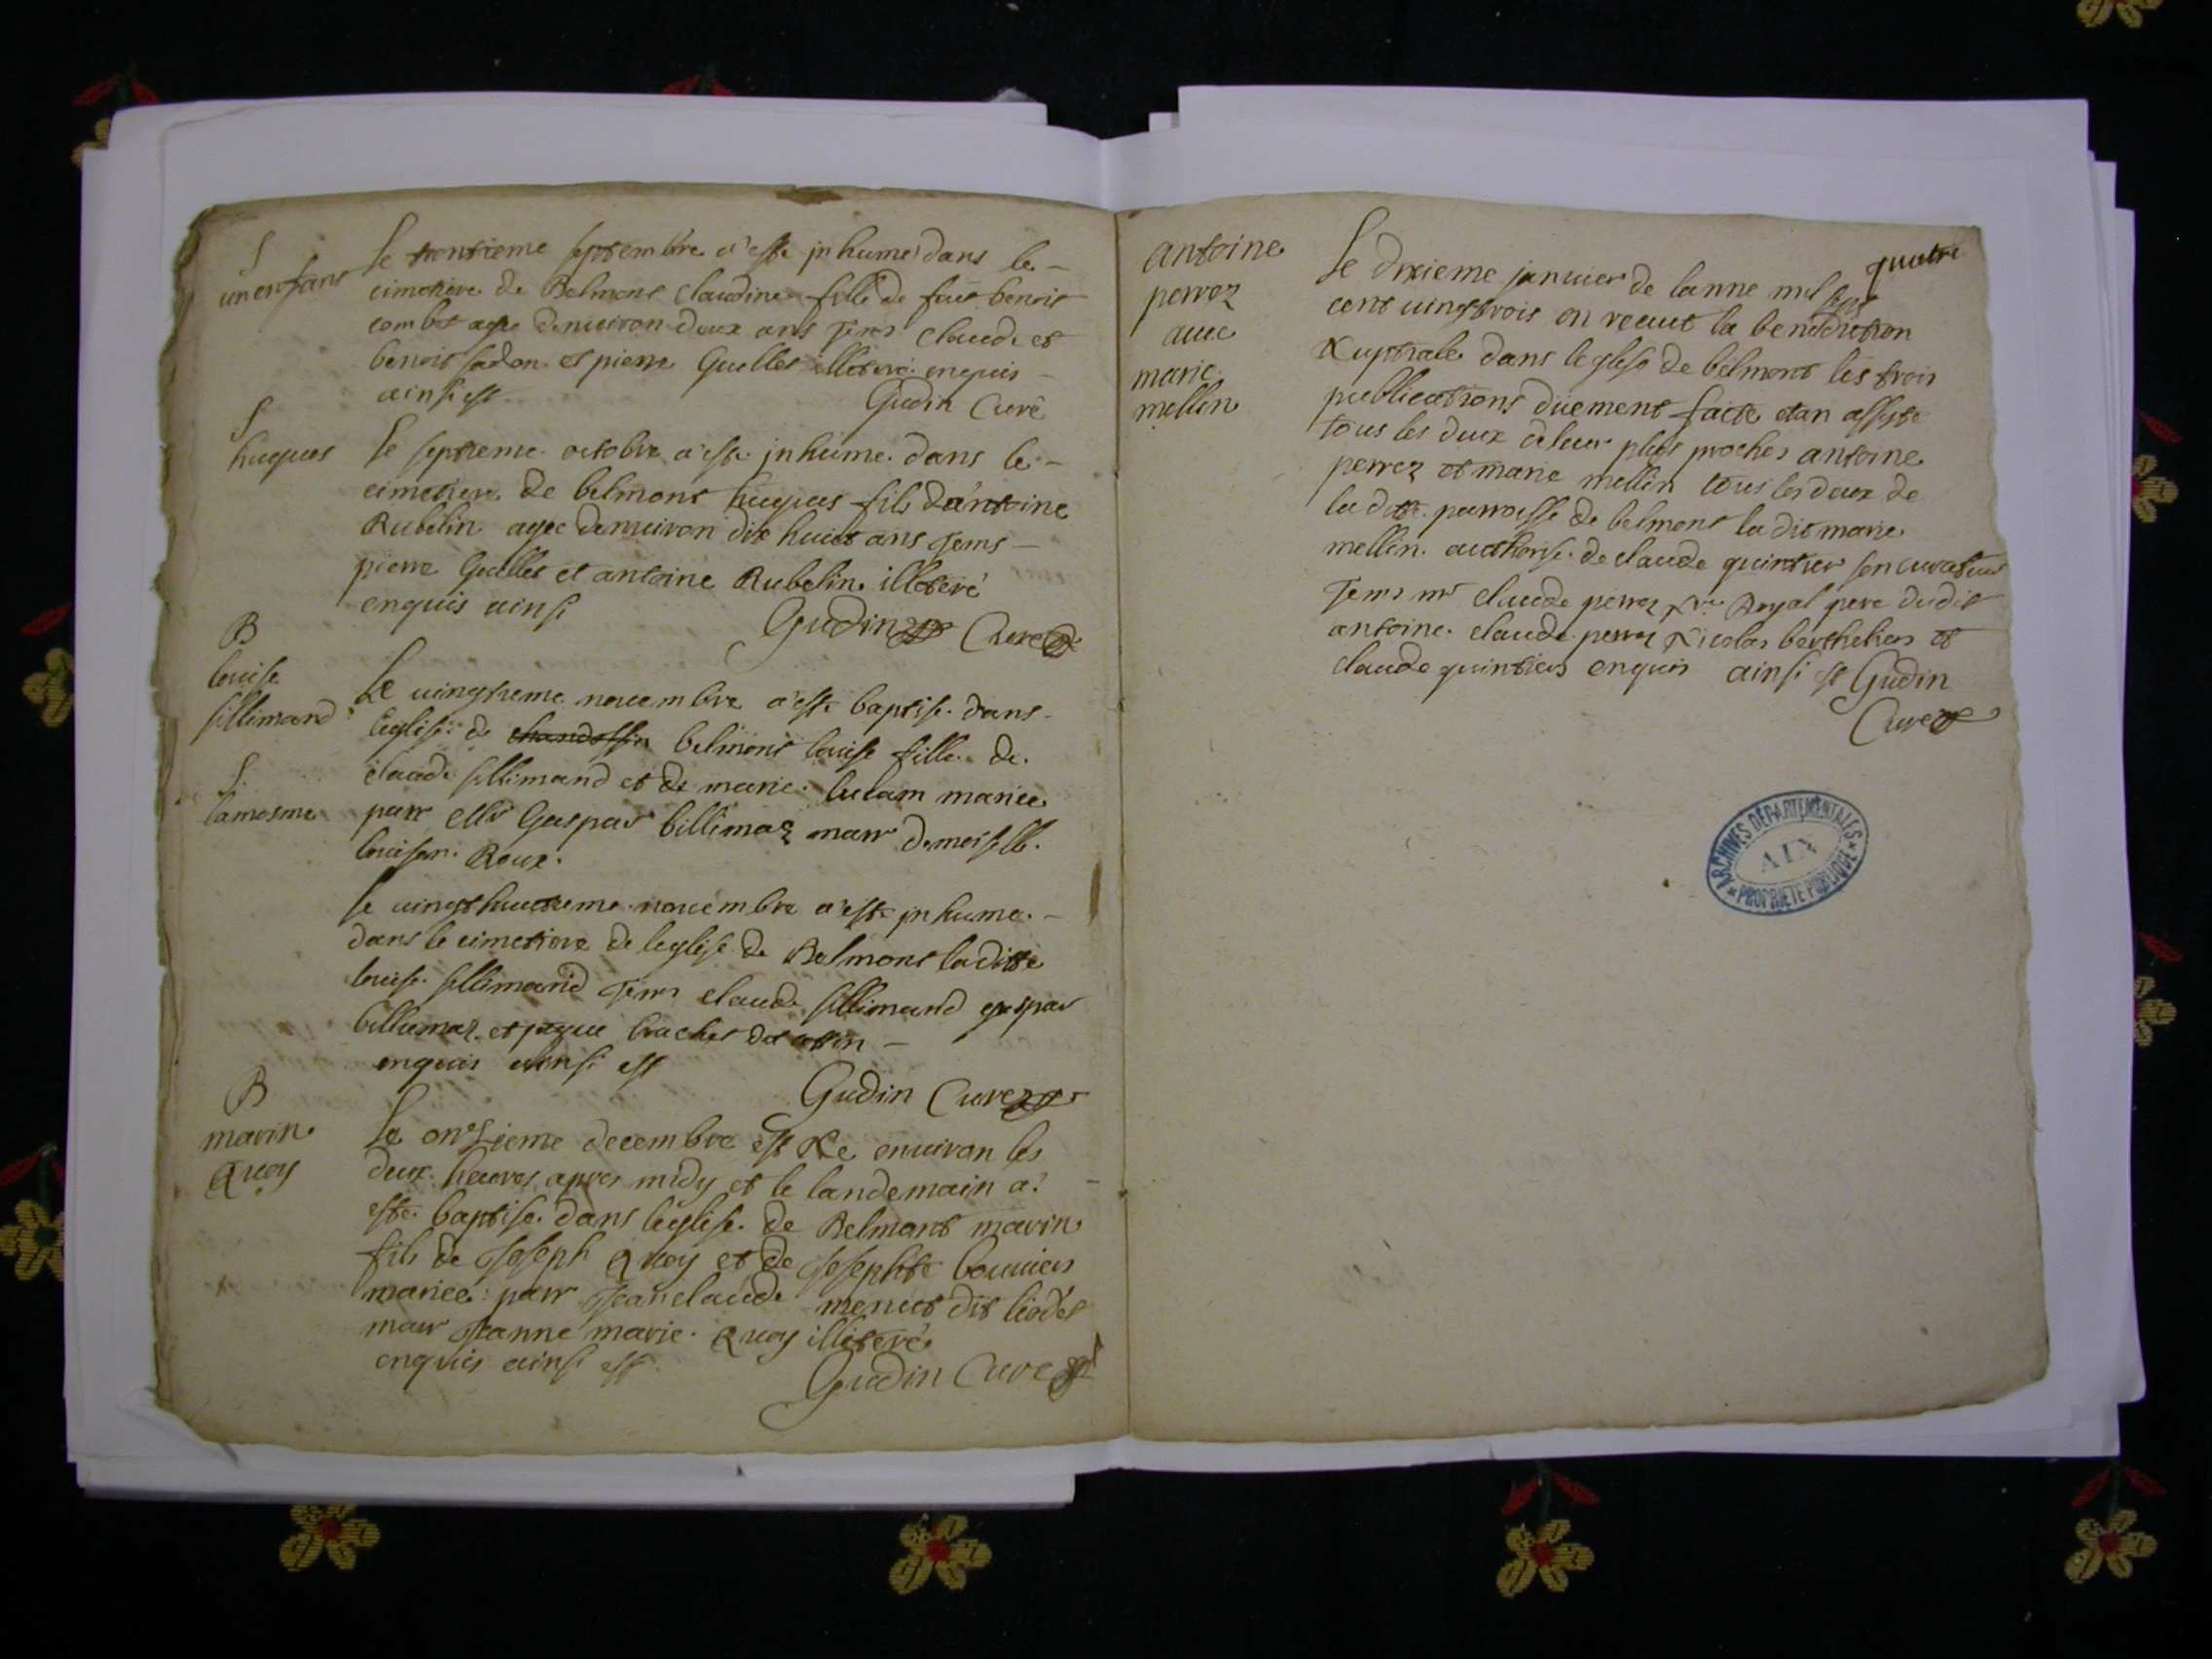 S
un enfant
le trentieme septembre a este inhumé dans le
cimetiere de Belmont claudine fille de feüt benoit
combet agée denuiron deux ans Tem claude et
benoit sadon et pierre Guellet illeteré enquis
ainsi est
Gudin Curé
S
hugues
le septieme octobre a este inhume dans le
cimetiere de belmont hugues fils d'antoine
Rubelin agée denuiron dix huict ans Tems
pierre Guillet et antoine Rubelin illeteré
enquis ainsi
Gudin Curé
B
louise
sillimand
Le uingtieme nouembre a este baptise dans
leglise de chandossin belmont louise fille de
claude sillimand et de marie lucain mariee
parr Gaspar billimaz marr demoiselle
louison Roux
S
la mesme
le uingthuictieme nouembre a este inhume
dans le cimetiere de leglise de Belmont laditte
louise sillimand Tems claude sillimand gaspar
billiemaz et brachet
enquis ainsi est
Gudin Curé
B
marin
Quoy
Le onzieme decembre est Ne enuiron les
deux heures apres midy et le landemain a
este baptise dans leglise de Belmont marin
fils de Joseph Quoy et de Josephte bouuier
mariee parr Jean claude menut dit
marr Jeanne marie Quoy illeteré
enquis ainsi est
Gudin Curé
antoine
perrez
auec
marie
mellin
quatre
Le dixieme januier de lanne mil sept
cent uingtrois on receut la benediction
Nuptiale dans leglise de belmont les trois
publications düement faitte etan assyste
tous les deux de leur plus proches antoine
perrez et marie mellin tous les deux de
la ditte parroisse de belmont la dit marie
mellin authorise de claude quintier son curateur
Tems mr claude perrez Nre Royal pere dudit
antoine claude perrez Nicolas berthelier et
claude quintier enquis ainsi est Gudin
Curé
ARCHIVES DÉPARTEMENTALES
AIN
PROPRIETE PUBLIQUE